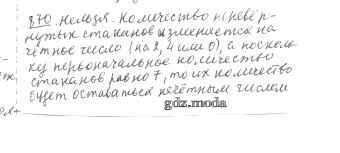 870. Нельзя. Количество перевёр-
нутых стаканов изменяется на
чётное число (на 2, 4 или 0), а посколь-
ку первоначальное количество
стаканов равно 7, то их количество
будет оставаться нечётным числом
gdz.moda